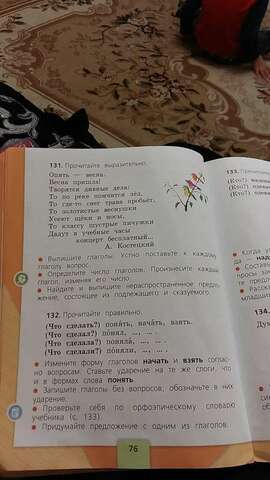 131. Прочитайте выразительно.
Опять — весна.
Весна пришла!
Творятся дивные дела:
То по реке помчится лёд,
То где-то снег трава пробьёт,
То золотистые веснушки
Усеют щёки и носы,
То классу шустрые пичужки
Дадут в учебные часы
концерт бесплатный...
А. Костецкий
Выпишите глаголы. Устно поставьте к каждому
глаголу вопрос.
Определите число глаголов. Произнесите каждый
глагол, изменяя его число.
Найдите и выпишите нераспространённое предло-
жение, состоящее из подлежащего и сказуемого.
132. Прочитайте правильно.
(Что сделать?) понять, начать, взять.
(Что сделал?) понял, ..., ... .
(Что сделала?) поняла, ..., ... .
(Что сделали?) поняли, ..., ... .
Измените форму глаголов начать и взять соглас-
но вопросам. Ставьте ударение на те же слоги, что
и в формах слова понять.
Запишите глаголы без вопросов, обозначьте в них
ударение.
Проверьте себя по орфоэпическому словарю
учебника (с. 133).
Придумайте предложение с одним из глаголов.
76
133.
(Кто?)
(Кто?)
Когда
134.